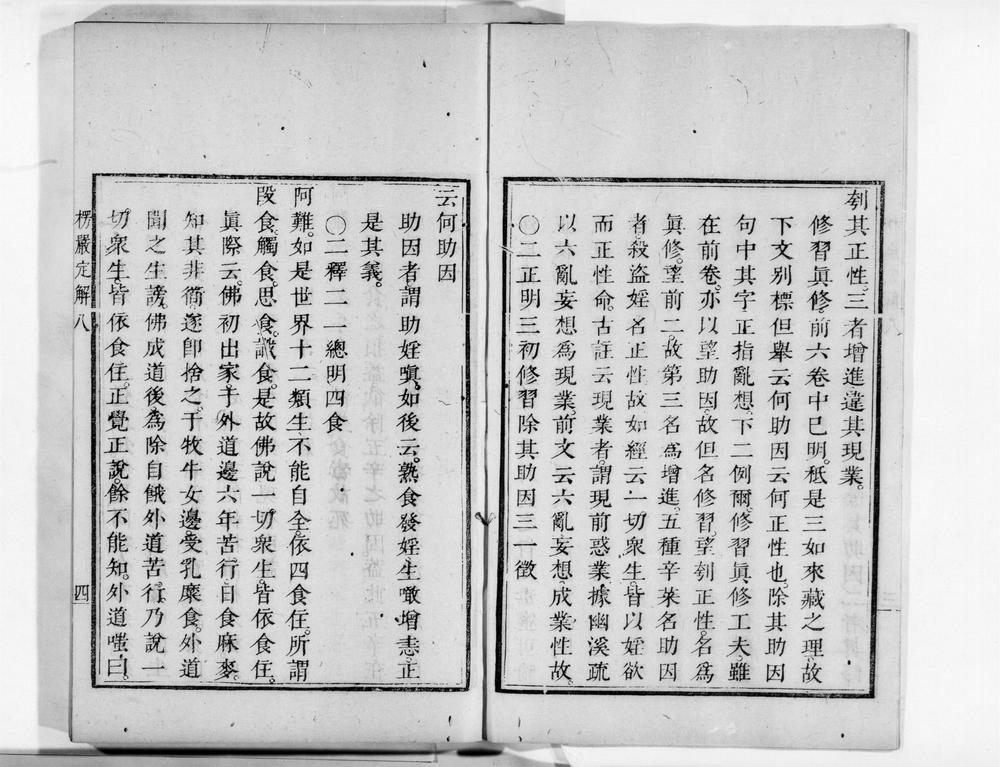 刳其正性。三者增進。違其現業。
修習眞修。前六卷中巳明。秪是三如來藏之理。故
下文别標。但舉云何助因。云何正性也。除其助因
句中其字。正指亂想。下二例爾。修習眞修工夫。雖
在前卷。亦以望助因。故但名修習。望刳正性。名爲
眞修。望前二。故第三名爲增進。五種辛菜名助因
者。殺盜婬名正性。故如經云。一切衆生。皆以婬欲
而正性命。古註云。現業者。謂現前惑業。據幽溪疏。
以六亂妄想爲現業。前文云。六亂妄想。成業性故。
〇二正明三初修習除其助因三一徵
云何助因
助因者。謂助婬嗔。如後云。熟食發婬。生噉增恚。正
是其義。
〇二釋二一總明四食
阿難。如是世界十二類生。不能自全。依四食住。所謂
段食。觸食。思食。識食。是故佛說一切衆生。皆依食住。
眞際云。佛初出家。于外道邊六年苦行。日食麻麥。
知其非衟。遂卽捨之。于牧牛女邊受乳糜食。外道
聞之生謗。佛成道後。爲除自餓外道苦行。乃說一
切衆生。皆依食住。正覺正說。餘不能知。外道嗤曰。
楞嚴定解八
四